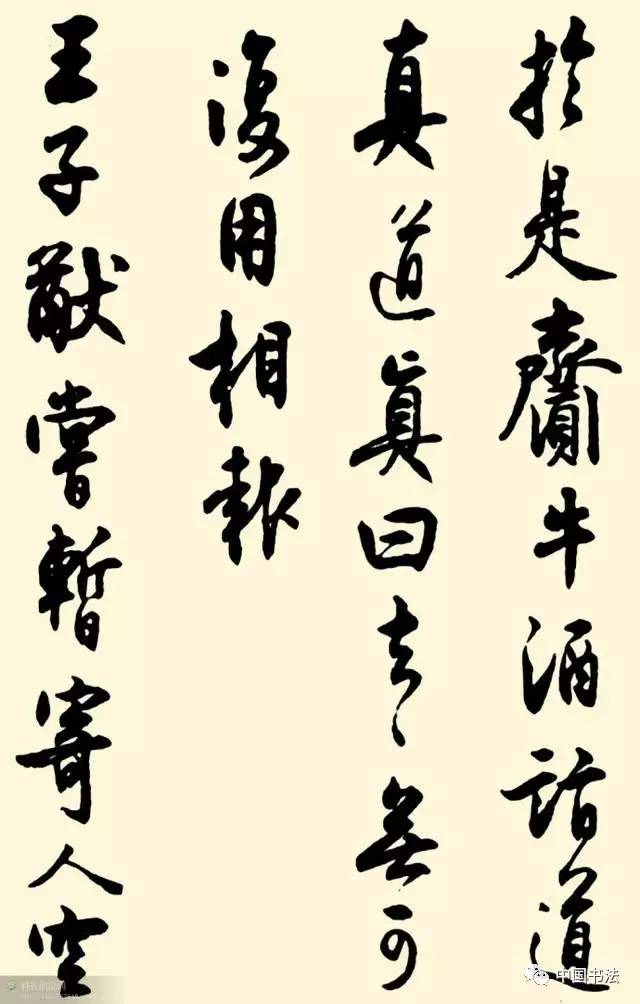 於是齎牛酒詣道
真道真曰去〻無可
復用相報
王子猷嘗暫寄人空
中国书法